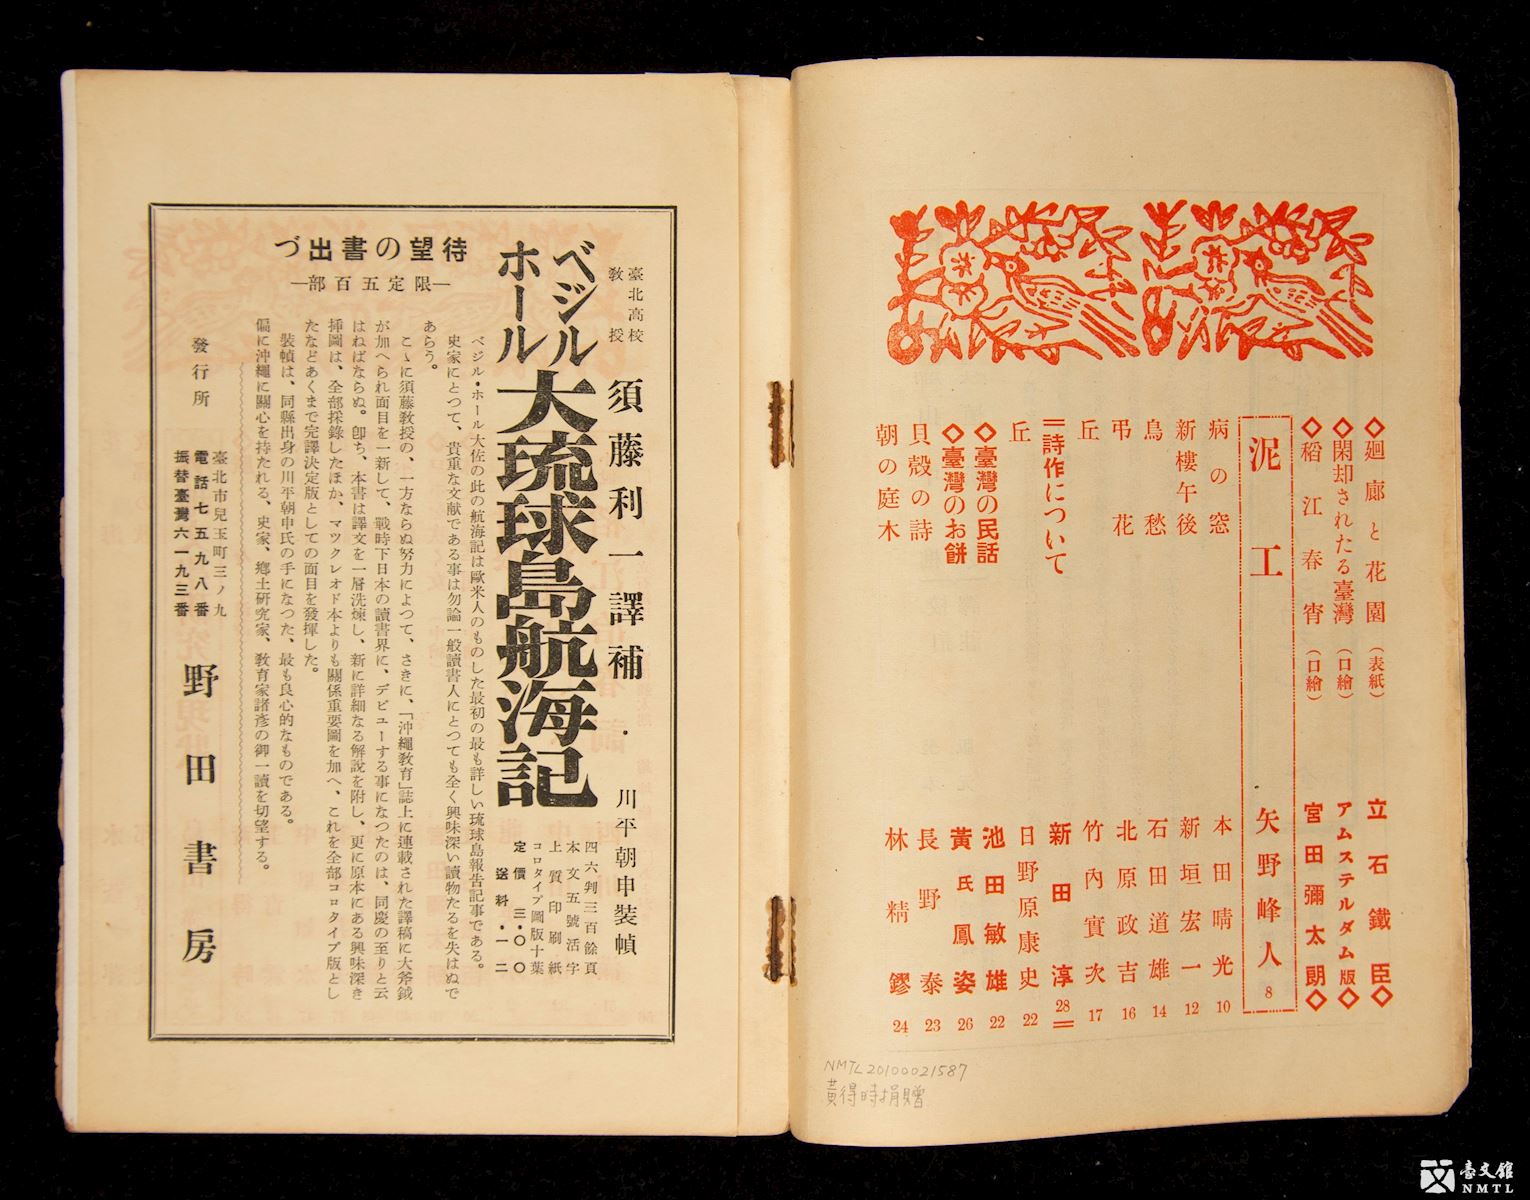 ◇廻廊と花園(表紙) 立石鐵臣◇
◇閑却されたる臺灣(口繪) アムステルダム版◇
◇稻江春宵(口繪) 宮田彌太朗◇
泥工 矢野峰人 8
病の窓 本田晴光 10
新樓午後 新垣宏一 12
鳥愁 石田道雄 14
弔花 北原政吉 16
丘 竹內實次 17
=詩作について 新田淳 28=
丘 日野原康史 22
◇臺灣の民話 池田敏雄 22
◇臺灣のお餅 黃氏鳳姿 26
貝殼の詩 長野泰 23
朝の庭木 林精鏐 24
NMTL20100021587
黃得時捐贈
臺北高校
敎授
須藤利一譯補・川平朝申裝幀
ベジル
ホール
大琉球島航海記
四六判三百餘頁
本文五號活字
上質印刷紙
コロタイプ圖版十葉
定價 三・〇〇
送料・一二
待望の書出づ
―限定五百部―
ベジル・ホール大佐の此の航海記は歐米人のものした最初の最も詳しい琉球島報告記事である。
史家にとつて、貴重な文献である事は勿論一般讀書人にとつても全く興味深い讀物たるを失はぬで
あらう。
こゝに須藤敎授の、一方ならぬ努力によつて、さきに、「沖繩敎育」誌上に連載された譯稿に大斧鉞
が加へられ面目を一新して、戰時下日本の讀書界に、デビューする事になつたのは、同慶の至りと云
はねばならぬ。卽ち、本書は譯文を一層洗煉し、新に詳細なる解說を附し、更に原本にある興味深き
挿圖は、全部採錄したほか、マツクレオド本よりも關係重要圖を加へ、これを全部コロタイプ版とし
たなどあくまで完譯決定版としての面目を發揮した。
裝幀は、同縣出身の川平朝申氏の手になつた、最も良心的なものである。
偏に沖繩に關心を持たれる、史家、鄕土硏究家、敎育家諸彥の御一讀を切望する。
發行所
臺北市兒玉町三ノ九
電話七五九八番
振替臺灣六一九三番
野田書房
臺文館
NMTL